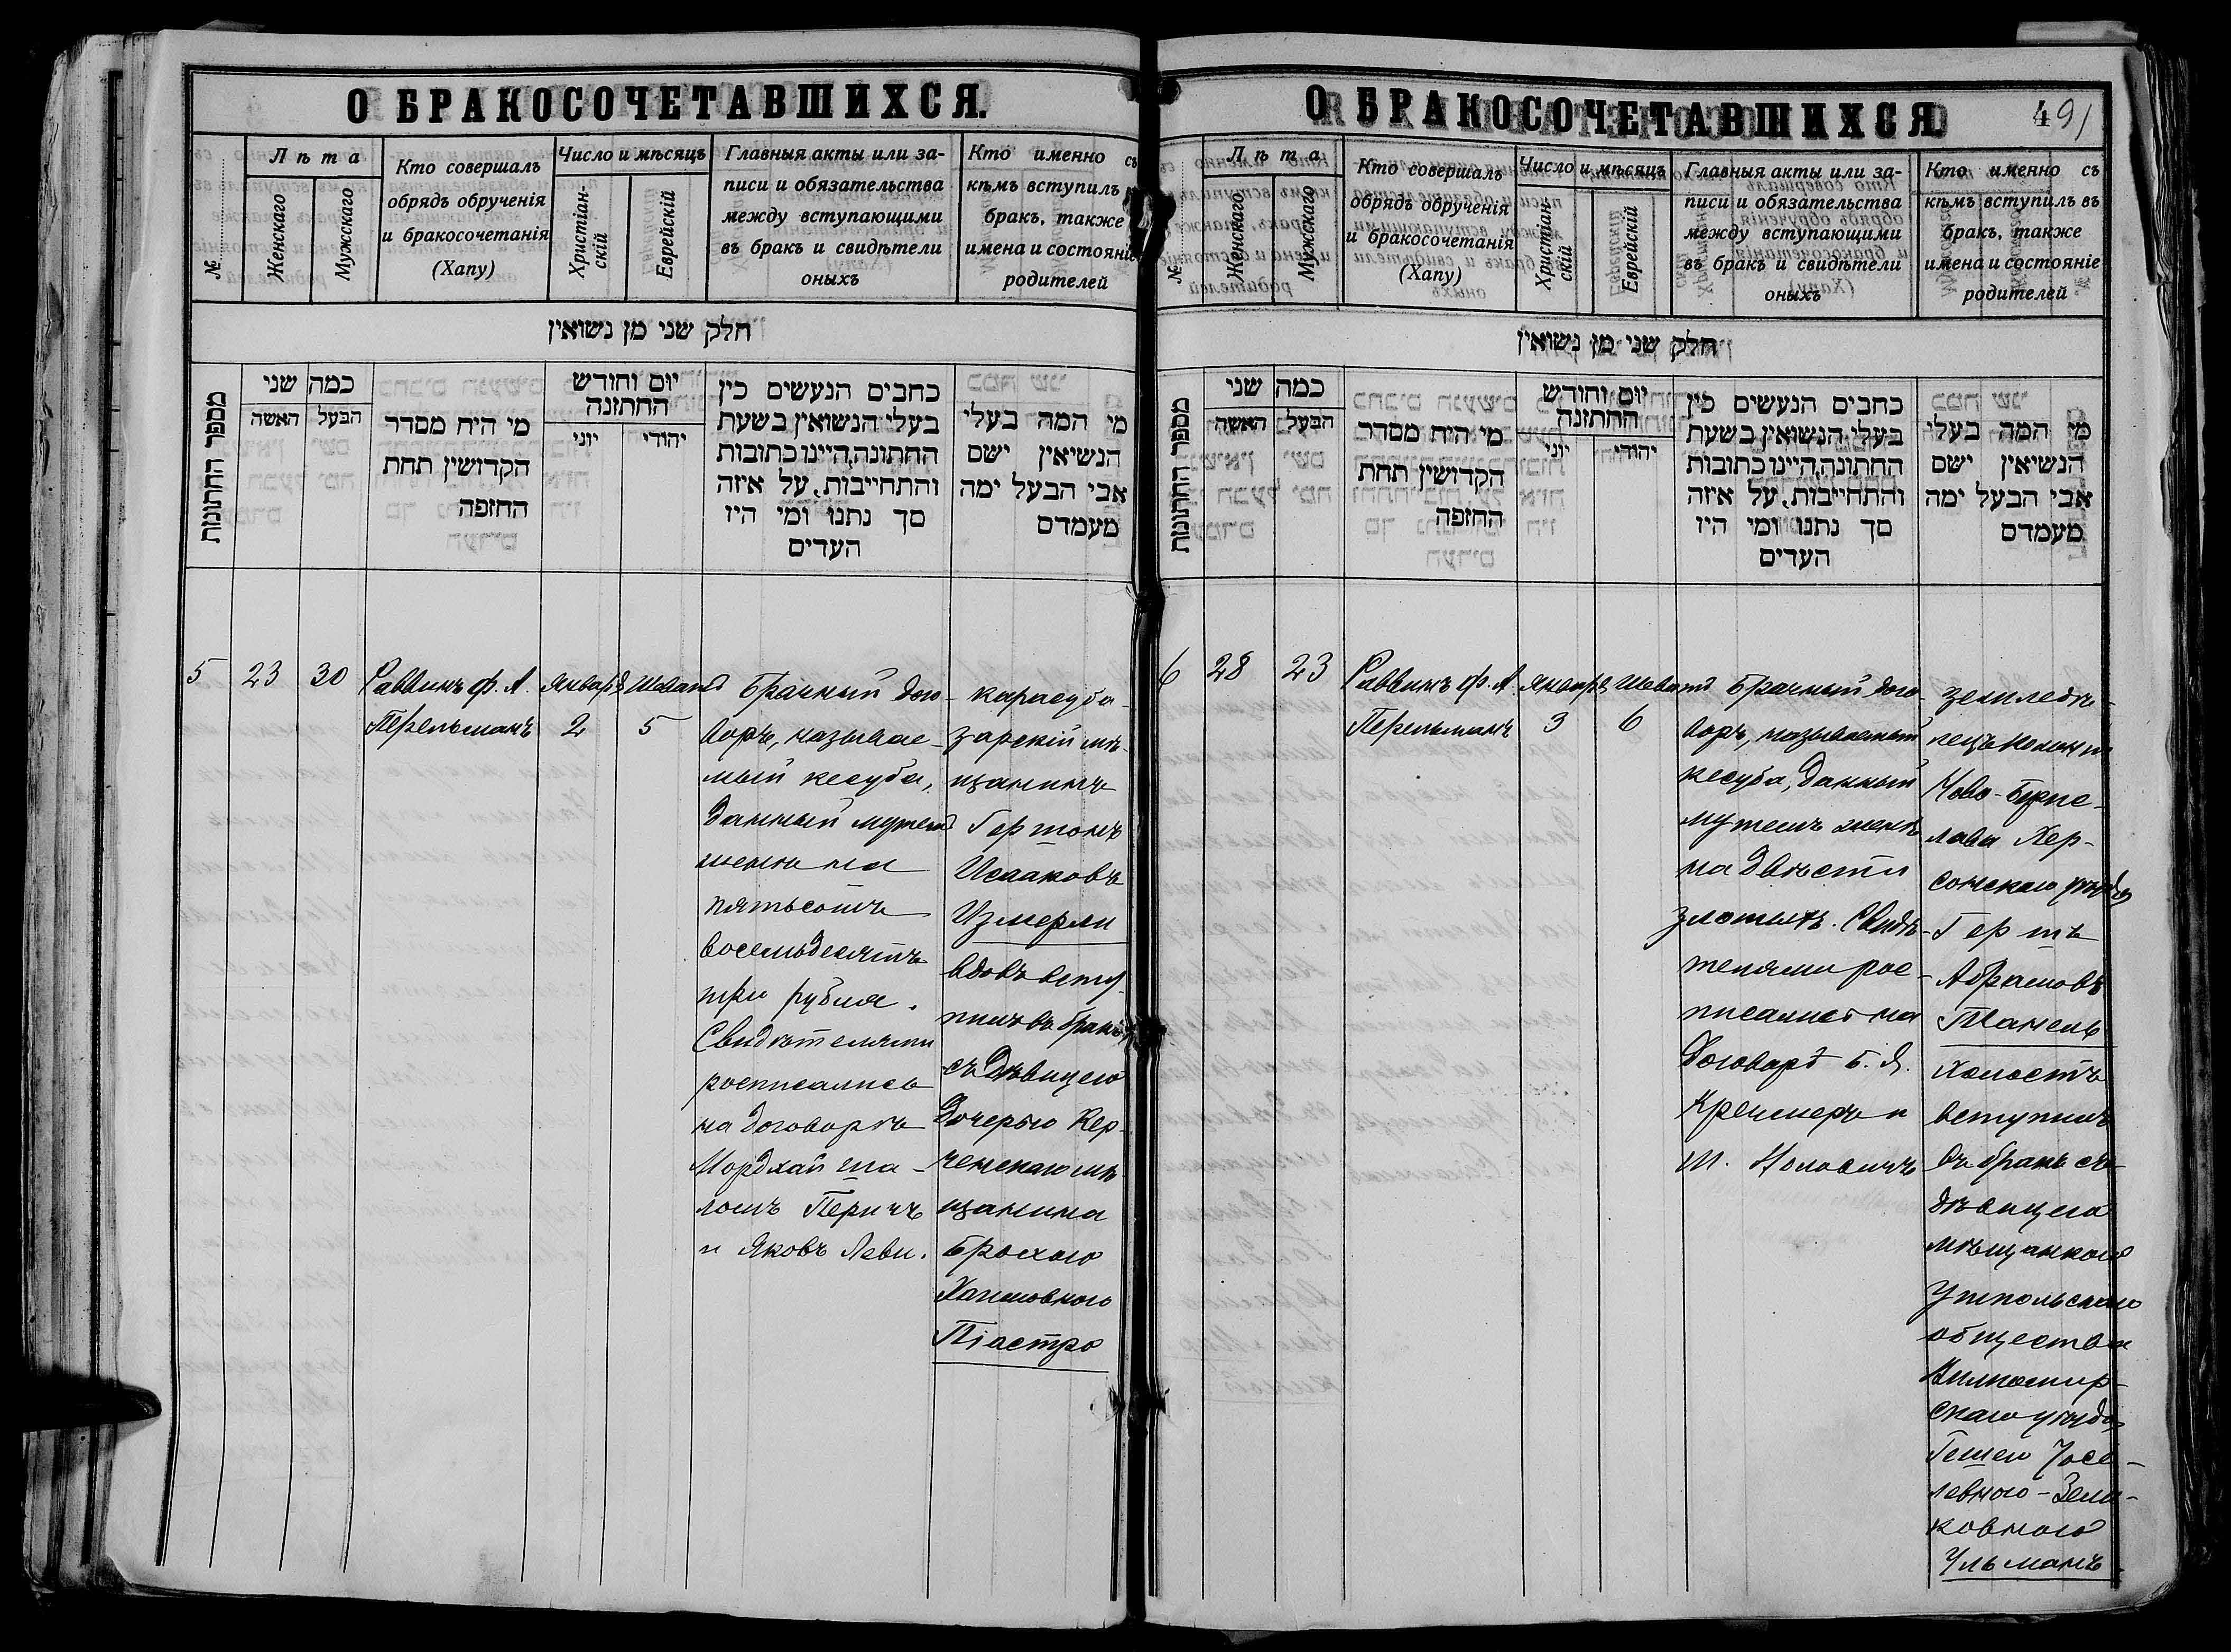 О БРАКОСОЧЕТАВШИХСЯ.
№
Лѣта
Женскаго
Мужскаго
Кто совершалъ
обрядъ обрученія
и бракосочетанія
(Хапу)
Число и мѣсяцъ
Христіан-
скій
Еврейскій
Главныя акты или за-
писи и обязательства
между вступающими
въ бракъ и свидѣтели
оныхъ
Кто именно съ
кѣмъ вступилъ
бракъ, также
имена и состояніе
родителей
חלק שני מן נשואין
מספר החתונות
כמה שני
האשה
הבעל
מי היח מסדר
הקדושין תחת
החופה
יום וחודש
החתונה
יוני
יהודי
כתבים הנעשים בין
בעלי הנשואין בשעת
החתונה, היינו כתובות
והתחייבות, על איזה
סך נתנו ומי היו
העדים
מי המה בעלי
הנשיאין ישם
אבי הבעל ימה
מעמדם
5
23
30
Раввинъ Ф. А.
Перельманъ
Январь
2
Шеватъ
5
Брачный дого-
воръ, называе-
мый кесуба,
данный мужемъ
женѣ на
пятьсотъ
восемьдесятъ
три рубля.
Свидѣтелями
росписались
на договорѣ
Мордхай Ша-
ломъ Перичъ
и Яковъ Леви.
карасуба-
зарскій мѣ-
щанинъ
Гершонъ
Исааковъ
Измерли
вдовъ всту-
пилъ въ бракъ
съ дѣвицею
дочерью Кер-
ченскаго мѣ-
щанина
Брохою
Хаимовною
Піастро
О БРАКОСОЧЕТАВШИХСЯ
491
№
Лѣта
Женскаго
Мужскаго
Кто совершалъ
обрядъ обрученія
и бракосочетанія
(Хапу)
Число и мѣсяцъ
Христіан-
скій
Еврейскій
Главныя акты или за-
писи и обязательства
между вступающими
въ бракъ и свидѣтели
оныхъ
Кто именно съ
кѣмъ вступилъ въ
бракъ, также
имена и состояніе
родителей
חלק שני מן נשואין
מספר החתונות
כמה שני
האשה
הבעל
מי היח מסדר
הקדושין תחת
החופה
יום וחודש
החתונה
יוני
יהודי
כתבים הנעשים בין
בעלי הנשואין בשעת
החתונה, היינו כתובות
והתחייבות, על איזה
סך נתנו ומי היו
העדים
מי המה בעלי
הנשיאין ישם
אבי הבעל ימה
מעמדם
6
28
23
Раввинъ Ф. А.
Перельманъ
Январь
3
Шеватъ
6
Брачный дого-
воръ, называемый
кесуба, данный
мужемъ женѣ
на двѣсти
злотыхъ. Свидѣ-
телями рос-
писались на
договорѣ Б. Я.
Кремеръ и
Ш.
земледѣ-
лецъ колоніи
Ново-Берис-
лава Хер-
сонскаго уѣзда
Гершъ
Абрамовъ
холостъ
вступилъ
въ бракъ съ
дѣвицею
мѣщанкою
Ушпольскаго
общества
Вилкомир-
скаго уѣзда
Гешею Іосе-
левною-Зели-
ковною
Ульманъ.